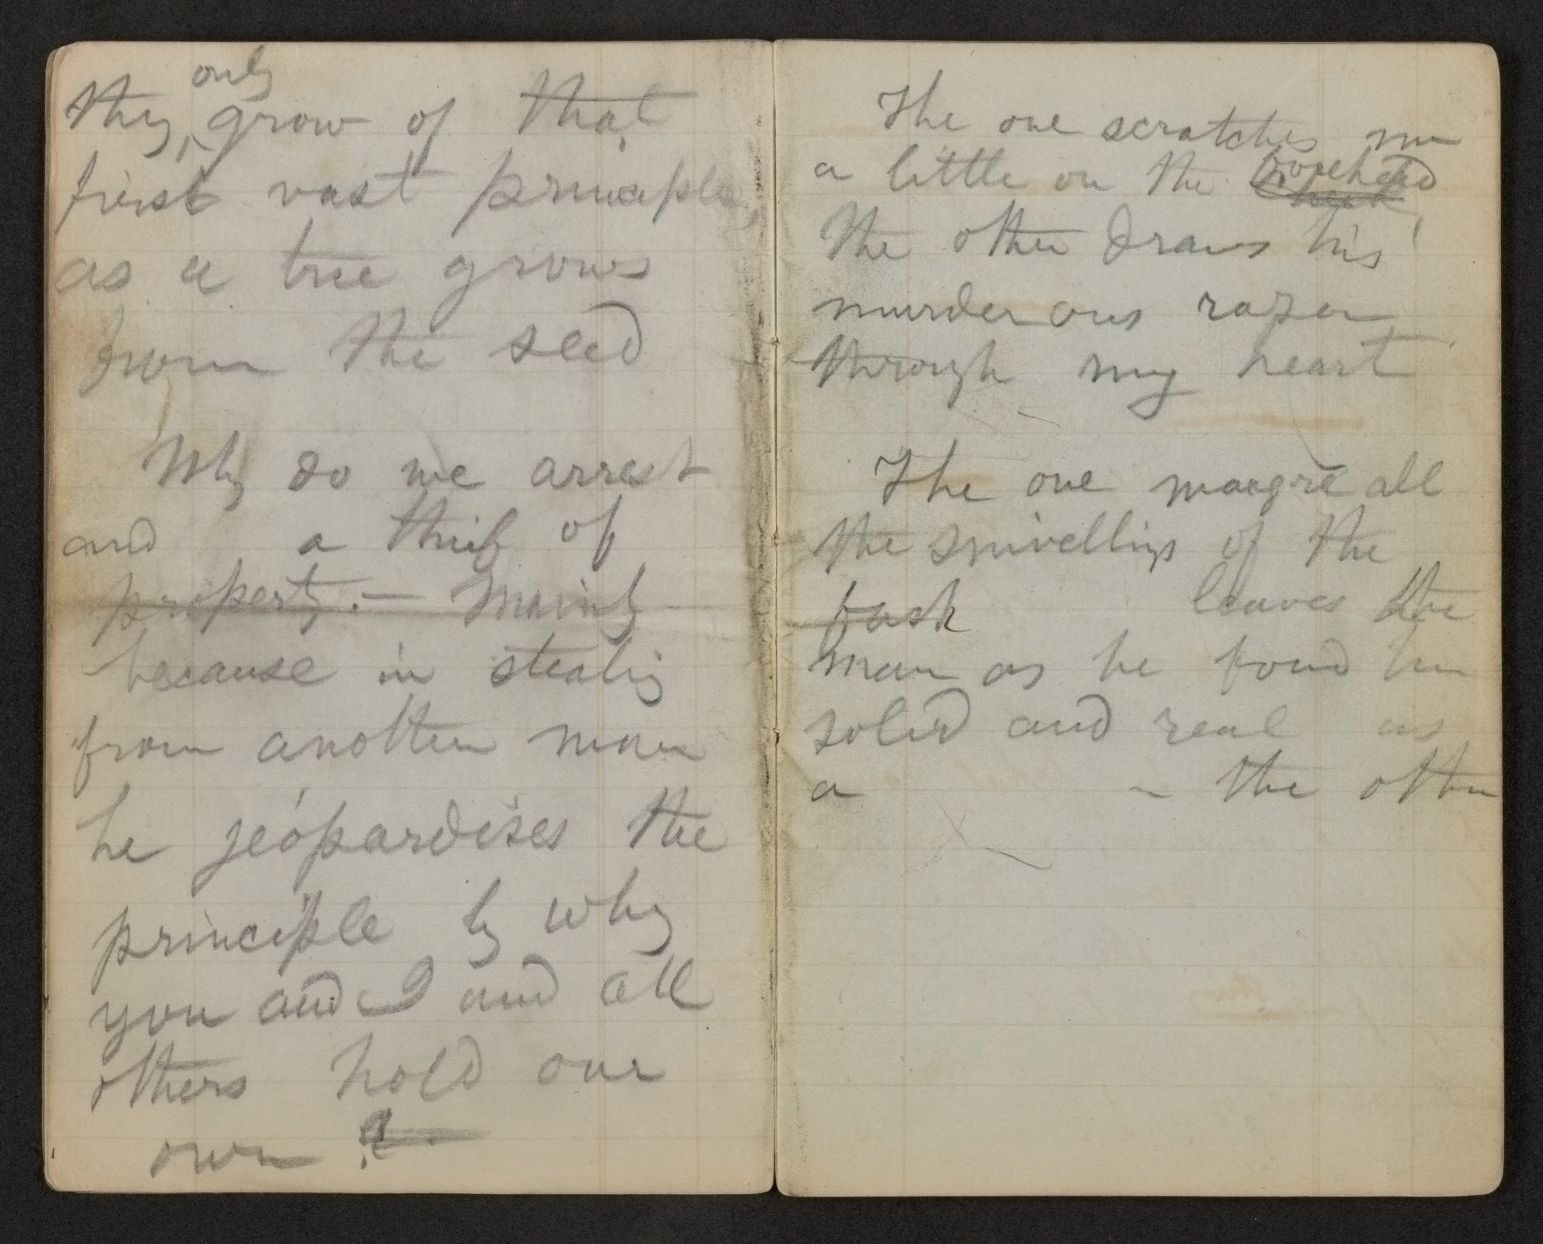 only
they, grow of that
first vast principle,
as a tree grows
from the seed
Why do we arrest
and a thief of
property.— Mainly
because in stealing
from another man
he jeopardises the
principle by why
you and I and all
others hold our
own ?
The one scratches me
a little on the forehead
the other draws his
murderous razor
through my heart
The one maugre all
the snivellings of the
fash leaves the
man as he found him
solid and real as
a — the other